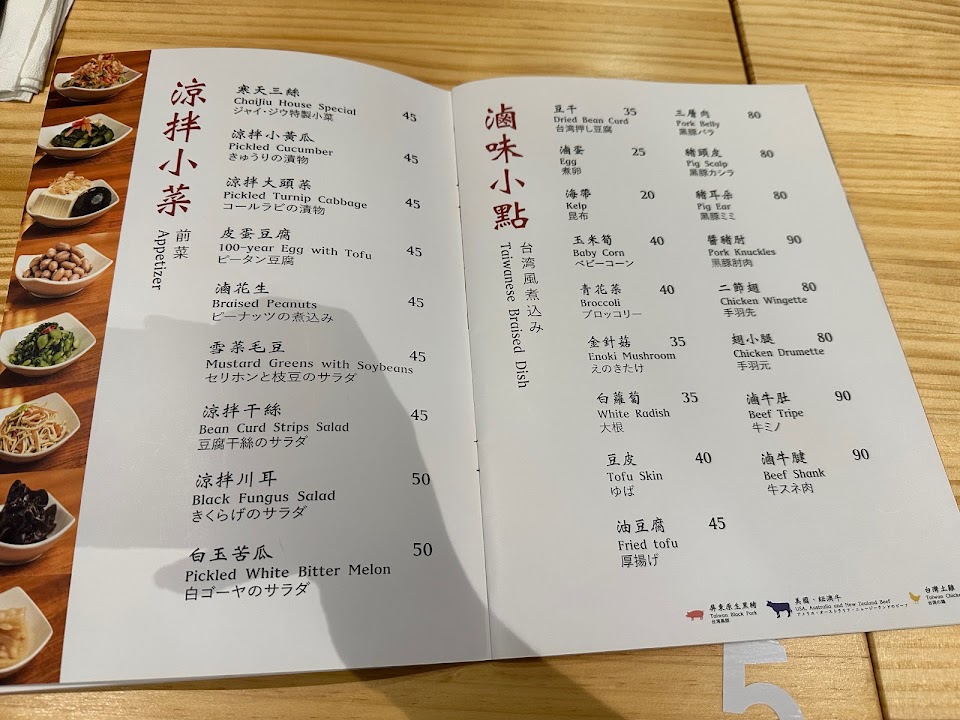 涼拌小菜
前菜
Appetizer
寒天三絲
ChaiJiu House Special 45
ジャイ・ジウ特製小菜
涼拌小黃瓜
Pickled Cucumber 45
きゅうりの漬物
涼拌大頭菜
Pickled Turnip Cabbage 45
コールラビの漬物
皮蛋豆腐
100-year Egg with Tofu 45
ピータン豆腐
滷花生
Braised Peanuts 45
ピーナッツの煮込み
雪菜毛豆
Mustard Greens with Soybeans 45
セリホンと枝豆のサラダ
涼拌干絲
Bean Curd Strips Salad 45
豆腐干絲のサラダ
涼拌川耳 50
Black Fungus Salad
きくらげのサラダ
白玉苦瓜 50
Pickled White Bitter Melon
白ゴーヤのサラダ
滷味小點
台湾風煮込み
Taiwanese Braised Dish
豆干 35
Dried Bean Curd
台湾押し豆腐
滷蛋 25
Egg
煮卵
海帶 20
Kelp
昆布
玉米筍 40
Baby Corn
ベビーコーン
青花菜 40
Broccoli
ブロッコリー
金針菇 35
Enoki Mushroom
えのきたけ
白蘿蔔 35
White Radish
大根
豆皮 40
Tofu Skin
ゆば
油豆腐 45
Fried tofu
厚揚げ
三層肉 80
Pork Belly
黒豚バラ
豬頭皮 80
Pig Scalp
黒豚カシラ
豬耳朵 80
Pig Ear
黒豚ミミ
醬豬肘 90
Pork Knuckles
黒豚肘肉
二節翅 80
Chicken Wingette
手羽先
翅小腿 80
Chicken Drumette
手羽元
滷牛肚 90
Beef Tripe
牛ミノ
滷牛腱 90
Beef Shank
牛スネ肉
屏東原生黑豬
Taiwan Black Pork
台湾黒豚
美國・紐澳牛
USA, Australia and New Zealand Beef
アメリカ・オーストラリア・ニュージーランドのビーフ
台灣土雞
Taiwan Chicken
台湾の鶏
5